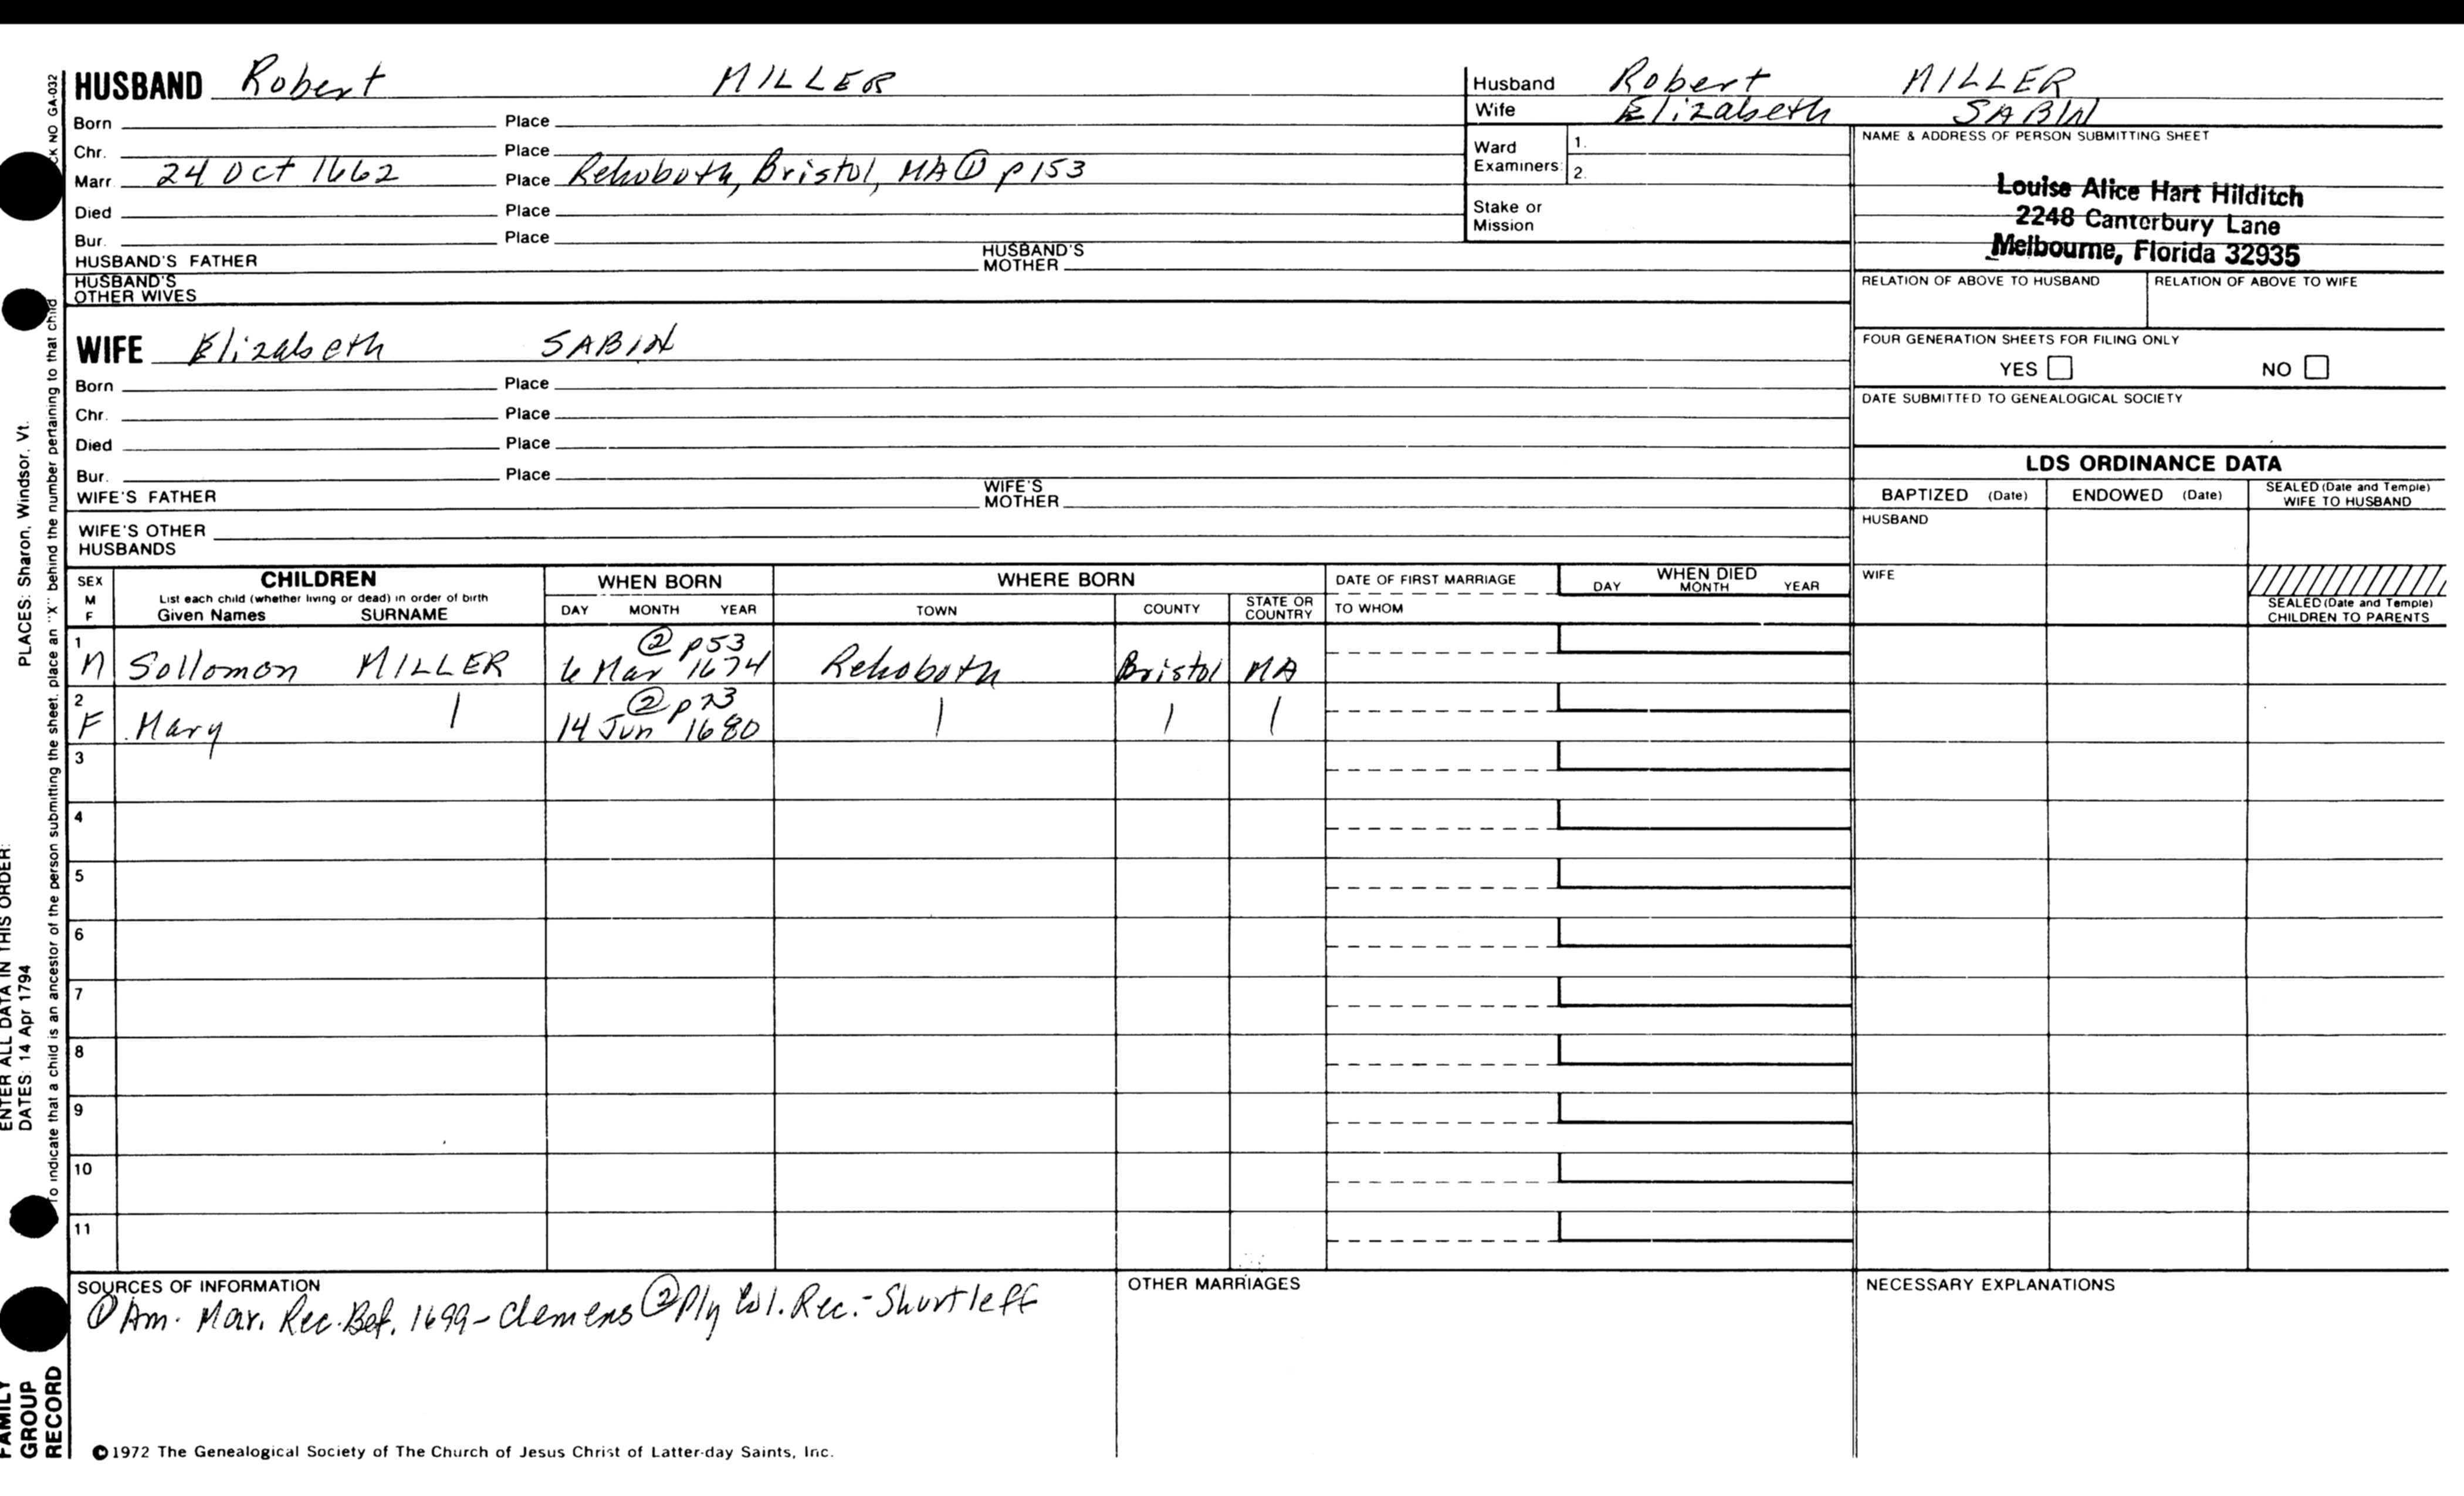 HUSBAND Robert MILLER
Born Place
Chr. Place
Marr 24 Oct 1662 Place Rehoboth, Bristol, MA ① p153
Died Place
Bur. Place
HUSBAND'S FATHER HUSBAND'S MOTHER
HUSBAND'S OTHER WIVES
WIFE Elizabeth SABIN
Born Place
Chr. Place
Died Place
Bur. Place
WIFE'S FATHER WIFE'S MOTHER
WIFE'S OTHER HUSBANDS
Husband Robert MILLER
Wife Elizabeth SABIN
Ward Examiners: 1.
2.
Stake or Mission
NAME & ADDRESS OF PERSON SUBMITTING SHEET
Louise Alice Hart Hilditch
2248 Canterbury Lane
Melbourne, Florida 32935
RELATION OF ABOVE TO HUSBAND RELATION OF ABOVE TO WIFE
FOUR GENERATION SHEETS FOR FILING ONLY
YES NO
DATE SUBMITTED TO GENEALOGICAL SOCIETY
LDS ORDINANCE DATA
BAPTIZED (Date) ENDOWED (Date) SEALED (Date and Temple) WIFE TO HUSBAND
HUSBAND
WIFE
SEALED (Date and Temple) CHILDREN TO PARENTS
SEX M F
CHILDREN
List each child (whether living or dead) in order of birth
Given Names SURNAME
WHEN BORN
DAY MONTH YEAR
WHERE BORN
TOWN COUNTY STATE OR COUNTRY
DATE OF FIRST MARRIAGE
TO WHOM
WHEN DIED
DAY MONTH YEAR
1 M Sollomon MILLER ② p53 6 Mar 1674 Rehoboth Bristol MA
2 F Mary | ② p73 14 Jun 1680 | | |
3
4
5
6
7
8
9
10
11
SOURCES OF INFORMATION
① Am. Mar. Rec. Bef. 1699 - Clemens ② Ply Col. Rec. - Shurtleff
OTHER MARRIAGES
NECESSARY EXPLANATIONS
©1972 The Genealogical Society of The Church of Jesus Christ of Latter-day Saints, Inc.
CK NO GA-032
To indicate that a child is an ancestor of the person submitting the sheet, place an "X" behind the number pertaining to that child
ENTER ALL DATA IN THIS ORDER:
DATES: 14 Apr 1794 PLACES: Sharon, Windsor, Vt.
FAMILY
GROUP
RECORD